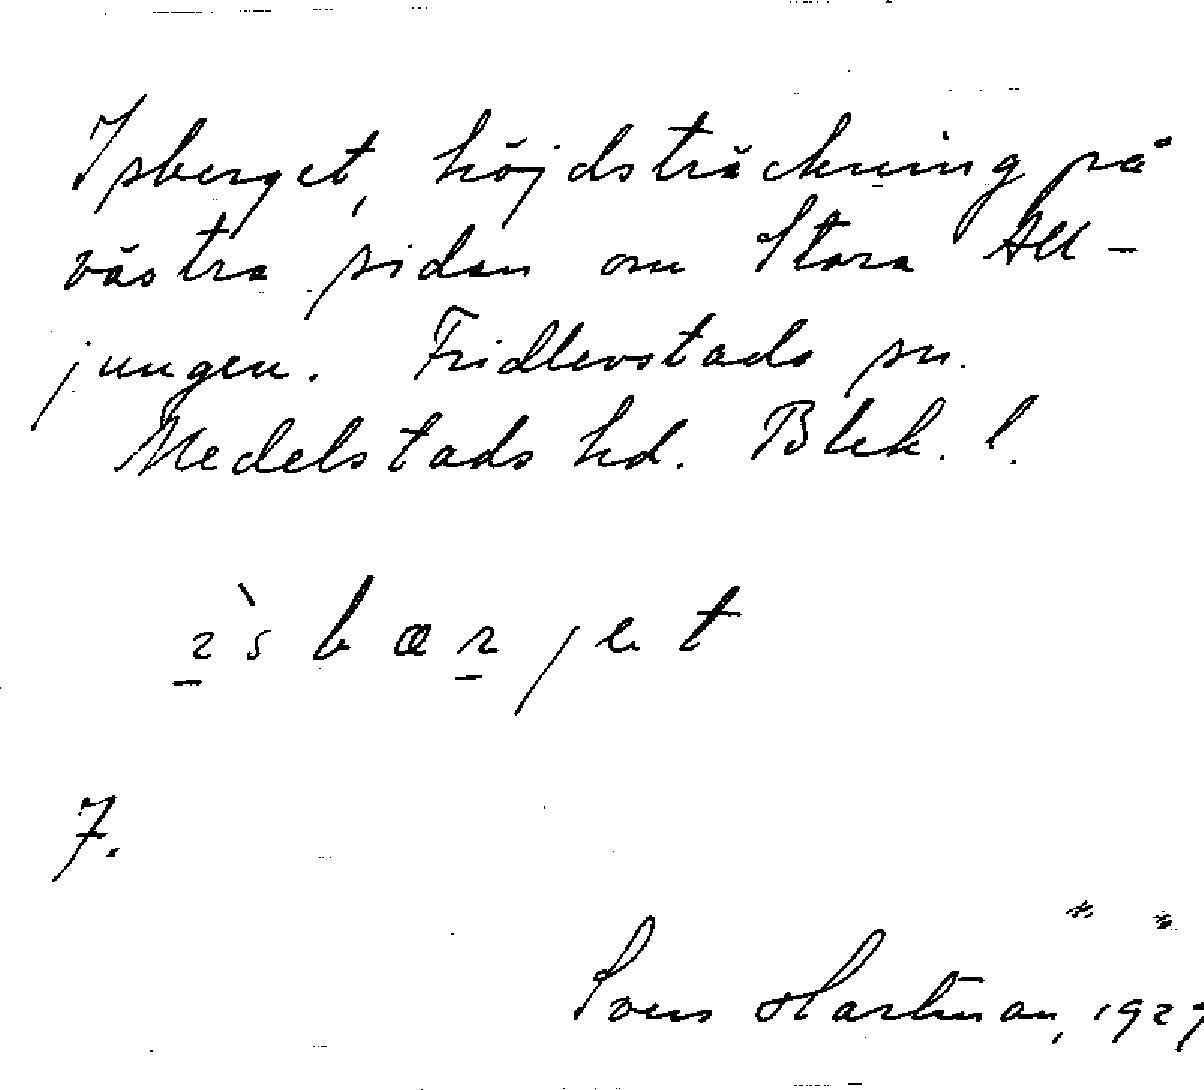 Isberget, höjdsträckning på
västra sidan om Stora All-
jungen. Fridlevstads sn.
Medelstads hd. Blek. l.
ı̀sbærjet
7.
Sven Hartman, 1929